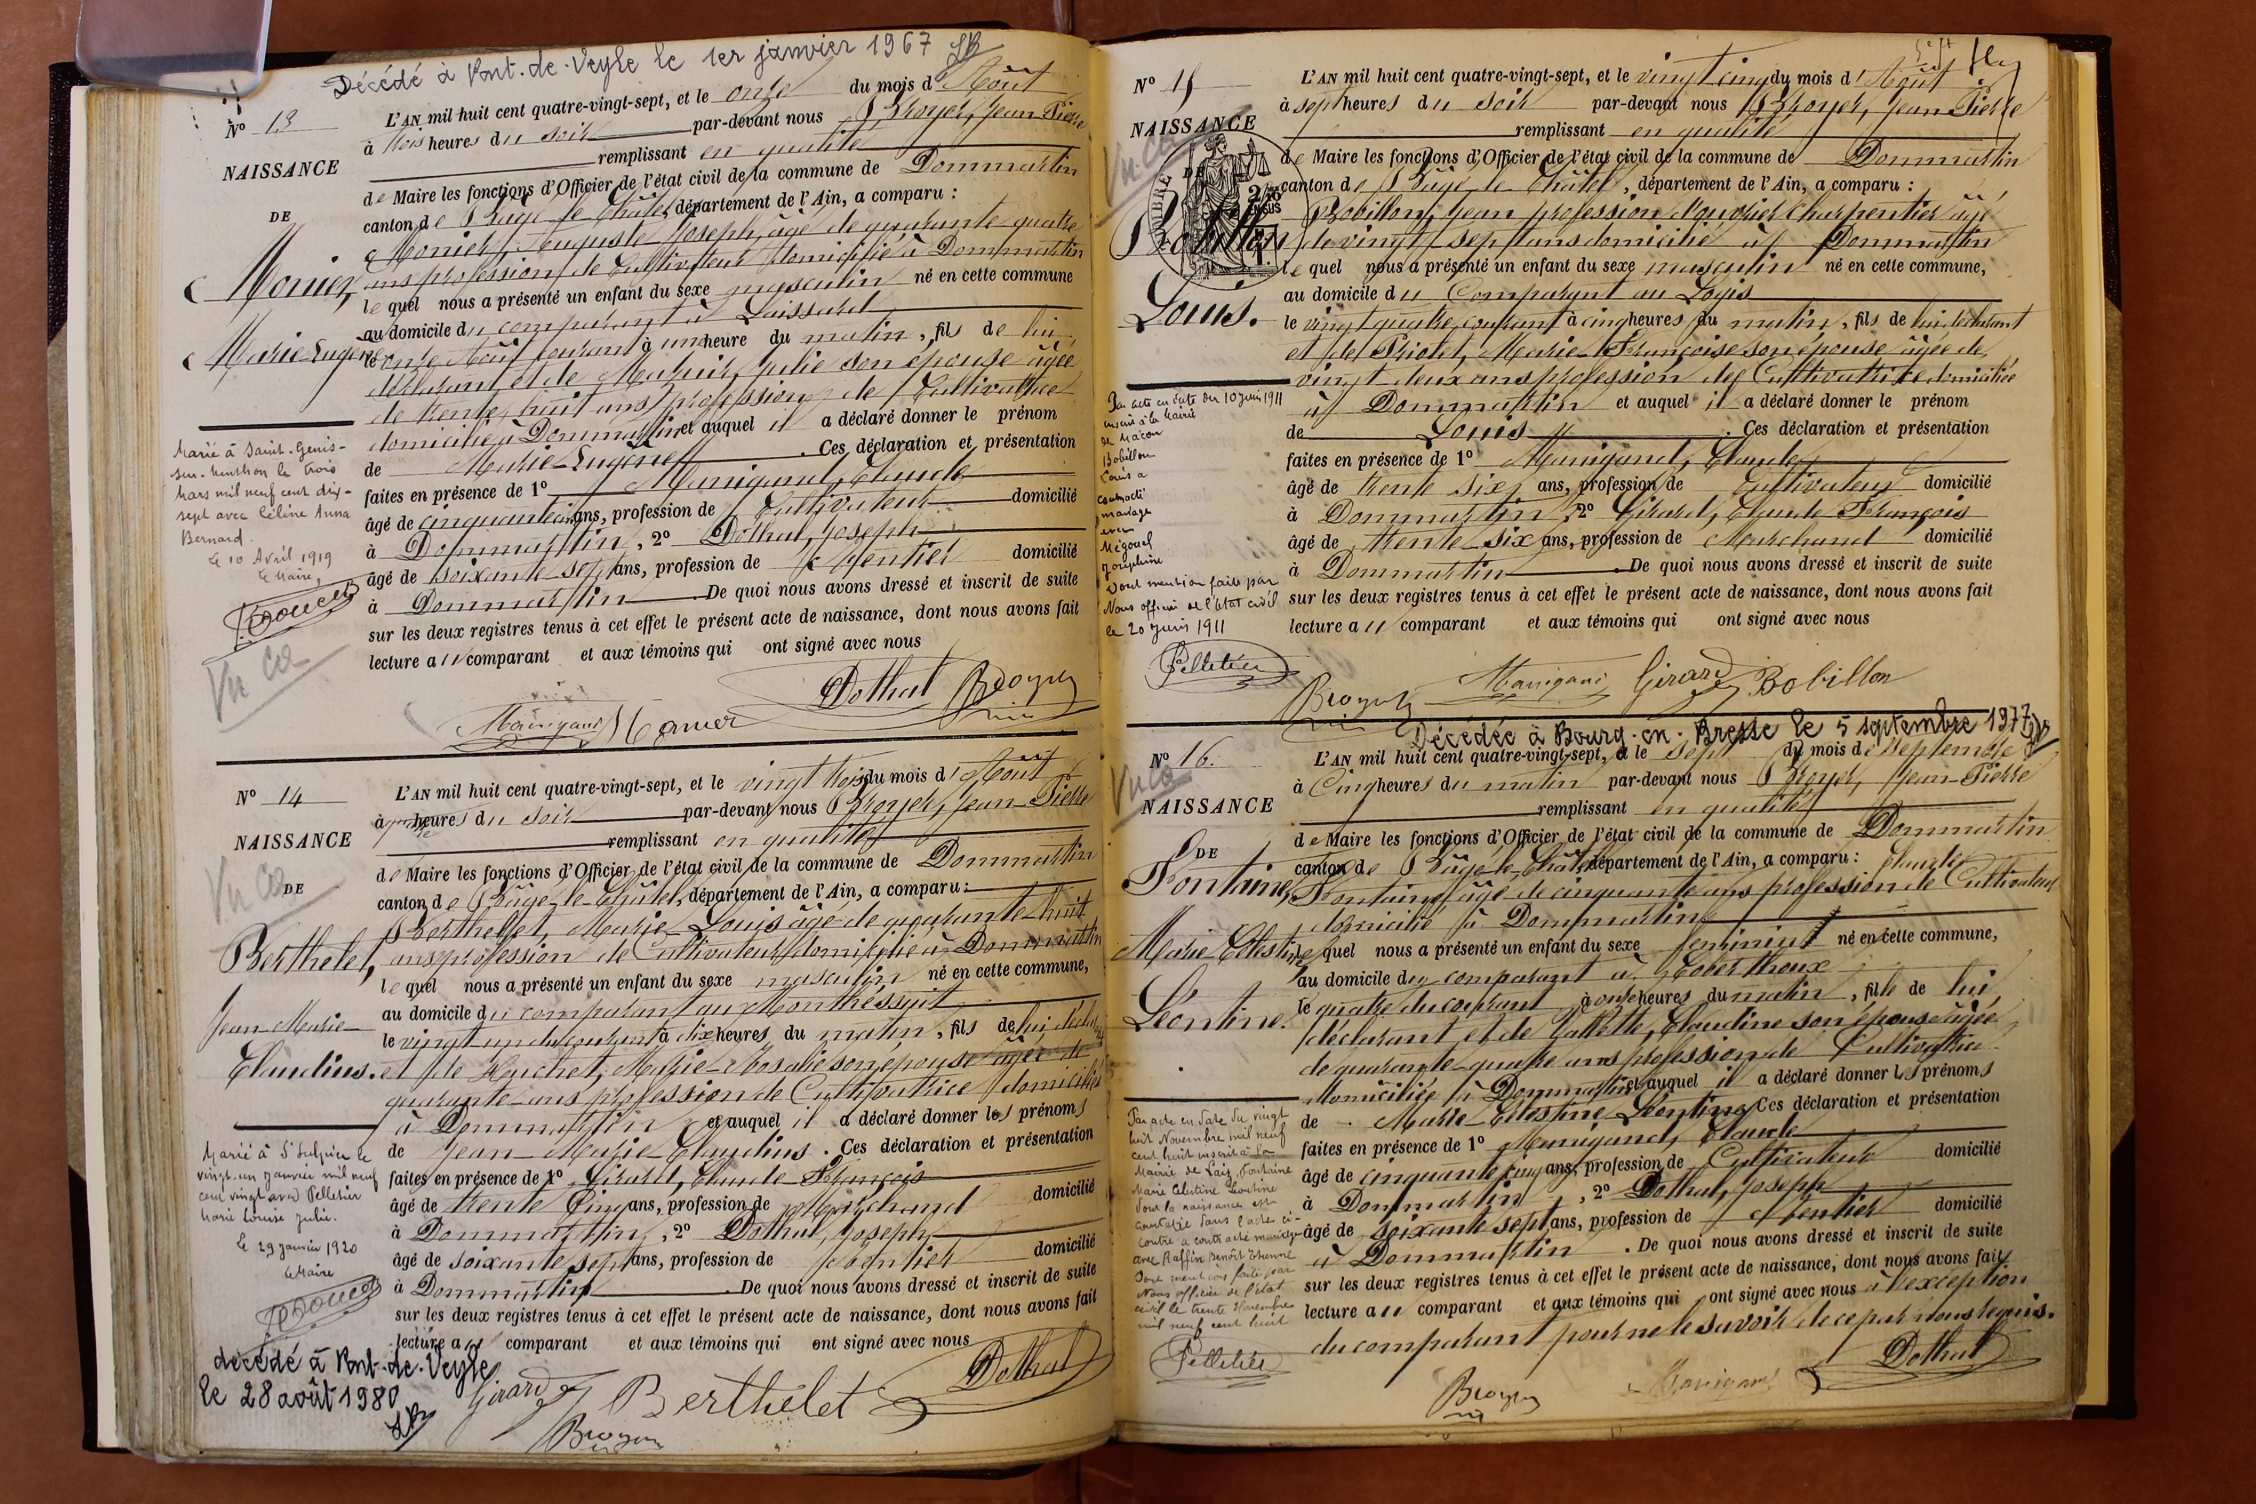 Décédé à Pont-de-Veyle le 1er janvier 1967
N° 13
NAISSANCE
DE
Monier,
Marie-Eugène
L'AN mil huit cent quatre-vingt-sept, et le onze du mois d'Août
à trois heures du soir par-devant nous Broyer, Jean Pierre
remplissant en qualité
de Maire les fonctions d'Officier de l'état civil de la commune de Dommartin
canton de Bâgé-le-Châtel, département de l'Ain, a comparu :
Monier, Auguste Joseph, âgé de quarante-quatre
ans profession de Cultivateur domicilié à Dommartin
lequel nous a présenté un enfant du sexe masculin né en cette commune
au domicile du comparant à
le onze Août courant à une heure du matin, fils de lui
déclarant et de Julie son épouse âgée
de trente huit ans profession de Cultivatrice
domiciliée à Dommartin et auquel il a déclaré donner le prénom
de Marie-Eugène . Ces déclaration et présentation
faites en présence de 1° Manigand, Claude
âgé de cinquante cinq ans, profession de Cultivateur domicilié
à Dommartin, 2° Dothal, Joseph
âgé de soixante-sept ans, profession de Rentier domicilié
à Dommartin . De quoi nous avons dressé et inscrit de suite
sur les deux registres tenus à cet effet le présent acte de naissance, dont nous avons fait
lecture au comparant et aux témoins qui ont signé avec nous
Marié à Saint-Genis-
sur-Menthon le trois
Mars mil neuf cent dix-
sept avec Céline Anna
Bernard.
Le 10 Avril 1919
Le Maire,
Vu
Dothal Broyer
Manigand Monier
N° 14
NAISSANCE
DE
Berthelet,
Jean-Marie-
Claudius.
L'AN mil huit cent quatre-vingt-sept, et le vingt trois du mois d'Août
à quatre heures du soir par-devant nous Broyer, Jean-Pierre
remplissant en qualité
de Maire les fonctions d'Officier de l'état civil de la commune de Dommartin
canton de Bâgé-le-Châtel, département de l'Ain, a comparu :
Berthelet, Marie-Louis âgé de quarante-huit
ans profession de Cultivateur domicilié à Dommartin
lequel nous a présenté un enfant du sexe masculin né en cette commune,
au domicile du comparant au
le vingt un du courant à dix heures du matin, fils de lui déclarant
et de Marie-Rosalie son épouse âgée de
quarante-ans profession de Cultivatrice domiciliée
à Dommartin et auquel il a déclaré donner les prénoms
de Jean-Marie-Claudius . Ces déclaration et présentation
faites en présence de 1° Girard, Claude François
âgé de trente cinq ans, profession de Marchand domicilié
à Dommartin, 2° Dothal, Joseph
âgé de soixante sept ans, profession de rentier domicilié
à Dommartin . De quoi nous avons dressé et inscrit de suite
sur les deux registres tenus à cet effet le présent acte de naissance, dont nous avons fait
lecture au comparant et aux témoins qui ont signé avec nous
Marié à St Sulpice le
vingt-un Janvier mil neuf
cent vingt avec Pelletier
Marie Louise Julie.
Le 29 Janvier 1920
Le Maire
décédé à Pont-de-Veyle
le 28 août 1980
Girard Berthelet Dothal
Broyer
N° 15
NAISSANCE
DE
Bobillon
Louis.
L'AN mil huit cent quatre-vingt-sept, et le vingt cinq du mois d'Août
à sept heures du soir par-devant nous Broyer, Jean Pierre
remplissant en qualité
de Maire les fonctions d'Officier de l'état civil de la commune de Dommartin
canton de Bâgé-le-Châtel, département de l'Ain, a comparu :
Bobillon, Jean profession d'ouvrier Charpentier âgé
de vingt-sept ans domicilié à Dommartin
lequel nous a présenté un enfant du sexe masculin né en cette commune,
au domicile du Comparant au Logis
le vingt quatre courant à cinq heures du matin, fils de lui déclarant
et de Priolet, Marie-Françoise son épouse âgée de
vingt-deux ans profession de Cultivatrice domiciliée
à Dommartin et auquel il a déclaré donner le prénom
de Louis . Ces déclaration et présentation
faites en présence de 1° Manigand, Claude
âgé de trente six ans, profession de Cultivateur domicilié
à Dommartin, 2° Girard, Claude François
âgé de trente-six ans, profession de Marchand domicilié
à Dommartin . De quoi nous avons dressé et inscrit de suite
sur les deux registres tenus à cet effet le présent acte de naissance, dont nous avons fait
lecture au comparant et aux témoins qui ont signé avec nous
Par acte en date du 10 juin 1911
inscrit à la Mairie
de Mâcon
Bobillon
Louis a
contracté
mariage
avec
Mégouel
Joséphine
Dont mention faite par
Nous officier de l'état civil
le 20 Juin 1911
Pelletier
Broyer Manigand Girard Bobillon
Décédée à Bourg-en-Bresse le 5 septembre 1977
N° 16.
NAISSANCE
DE
Fontaine,
Marie Célestine
Léontine.
L'AN mil huit cent quatre-vingt-sept, et le sept du mois de septembre
à Cinq heures du matin par-devant nous Broyer, Jean-Pierre
remplissant en qualité
de Maire les fonctions d'Officier de l'état civil de la commune de Dommartin
canton de Bâgé-le-Châtel, département de l'Ain, a comparu : Claude
Fontaine âgé de cinquante ans profession de Cultivateur
domicilié à Dommartin
lequel nous a présenté un enfant du sexe féminin né en cette commune,
au domicile du comparant à
le quatre du courant à onze heures du matin, fille de lui
déclarant et de Claudine son épouse âgée
de quarante-quatre ans profession de Cultivatrice
domiciliée à Dommartin et auquel il a déclaré donner les prénoms
de Marie-Célestine-Léontine Ces déclaration et présentation
faites en présence de 1° Manigand, Claude
âgé de cinquante cinq ans, profession de Cultivateur domicilié
à Dommartin, 2° Dothal, Joseph
âgé de soixante sept ans, profession de rentier domicilié
à Dommartin . De quoi nous avons dressé et inscrit de suite
sur les deux registres tenus à cet effet le présent acte de naissance, dont nous avons fait
lecture au comparant et aux témoins qui ont signé avec nous à l'exception
du comparant pour ne le savoir de ce par nous requis.
Par acte en date du vingt
huit Novembre mil neuf
cent huit inscrit à la
Mairie de Laiz, Fontaine
Marie Célestine Léontine
dont la naissance est
constatée dans l'acte ci-
contre a contracté mariage
avec Raffin Benoît Etienne
Dont mention faite par
Nous officier de l'état
civil le trente Novembre
mil neuf cent huit
Pelletier
Broyer Manigand Dothal